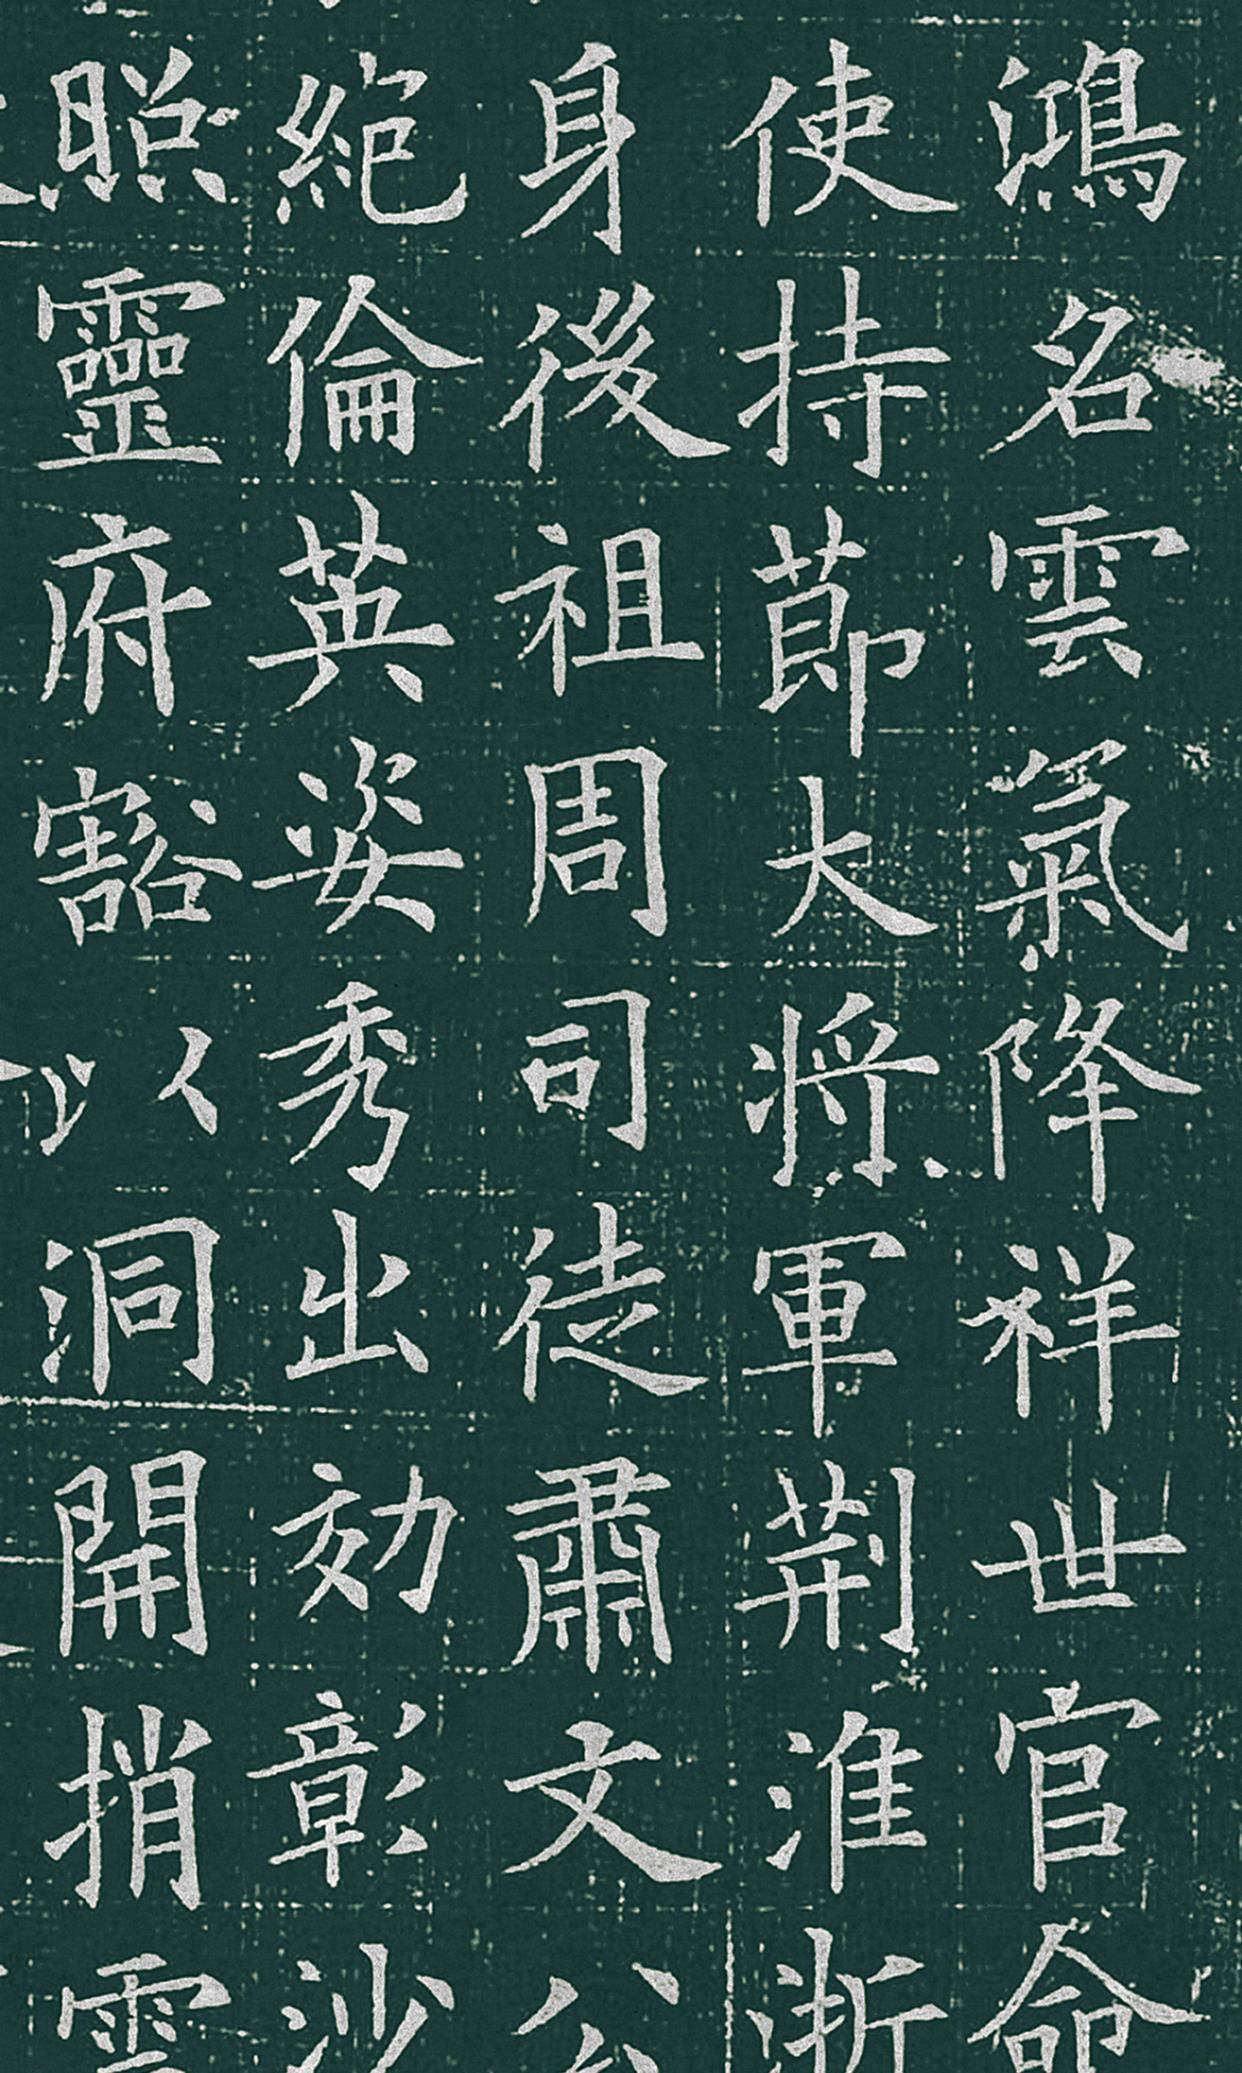 鴻名雲氣降祥世官命
使持節大將軍荆淮浙
身後祖周司徒肅文公
絕倫英姿秀出効彰沙
照靈府豁以洞開捎雲